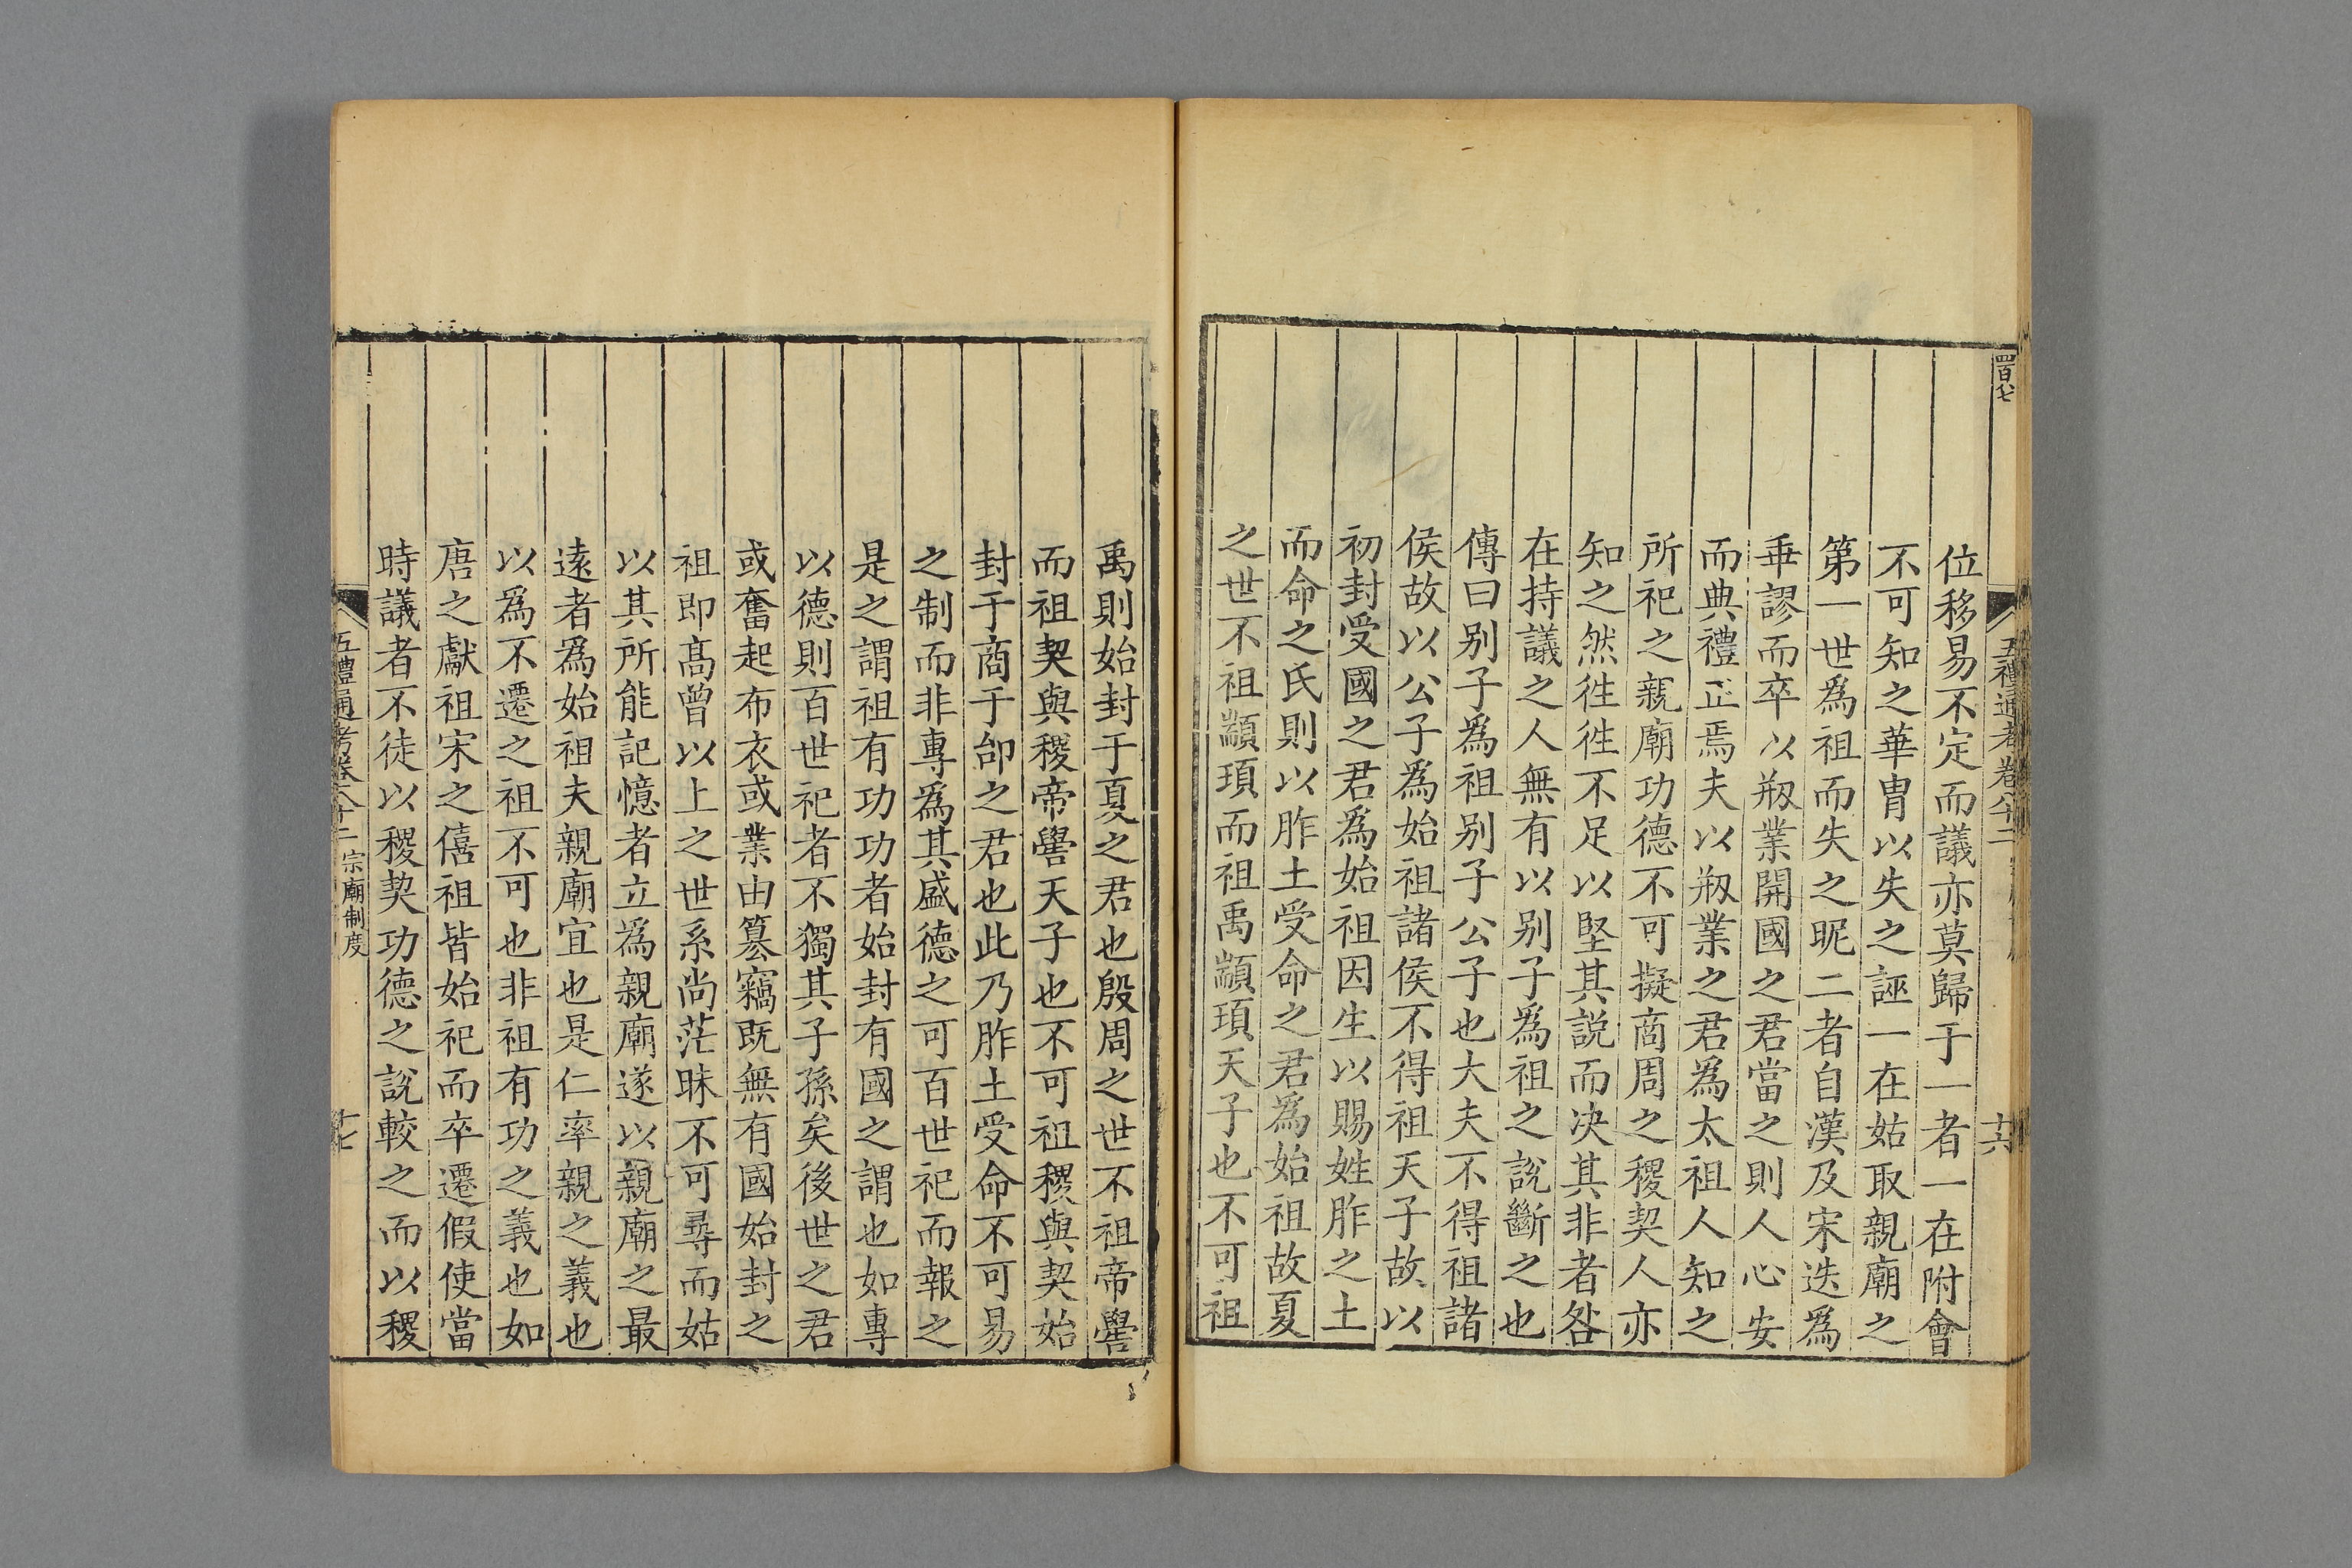 四百七
五禮通考卷八十二
十六
位移易不定而議亦莫歸于一者一在附會
不可知之華胄以失之誣一在姑取親廟之
第一世為祖而失之昵二者自漢及宋迭為
乖謬而卒以剏業開國之君當之則人心安
而典禮正焉夫以剏業之君為太祖人知之
所祀之親廟功德不可擬商周之稷契人亦
知之然徃徃不足以堅其説而决其非者咎
在持議之人無有以别子為祖之說斷之也
傳曰别子爲祖别子公子也大夫不得祖諸
侯故以公子爲始祖諸侯不得祖天子故以
初封受國之君爲始祖因生以賜姓胙之土
而命之氏則以胙土受命之君為始祖故夏
之世不祖顓頊而祖禹顓頊天子也不可祖
禹則始封于夏之君也殷周之世不祖帝嚳
而祖契與稷帝嚳天子也不可祖稷與契始
封于商于邰之君也此乃胙土受命不可易
之制而非專爲其盛德之可百世祀而報之
是之謂祖有功功者始封有國之謂也如專
以德則百世祀者不獨其子孫矣後世之君
或奮起布衣或業由篡竊既無有國始封之
祖即髙曾以上之世系尚茫昧不可尋而姑
以其所能記憶者立爲親廟遂以親廟之最
逺者爲始祖夫親廟宜也是仁率親之義也
以爲不遷之祖不可也非祖有功之義也如
唐之獻祖宋之僖祖皆始祀而卒遷假使當
時議者不徒以稷契功德之說較之而以稷
五禮通考卷八十二
宗廟制度
十七